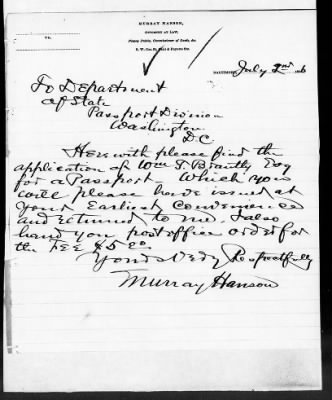 MURRAY HANSON,
ATTORNEY AT LAW,
Notary Public, Commissioner of Deeds, &c.
vs.
BALTIMORE, July 2nd
To Department
of State
Passport Division
Washington
D.C.
Herewith please find the
application of Wm T Brantly Esq
for a Passport Which you
will please have issued at
your Earliest Convenience
and returned to me. I also
hand you post office order for
the FEE $5 00
Yours Very Respectfully
Murray Hanson